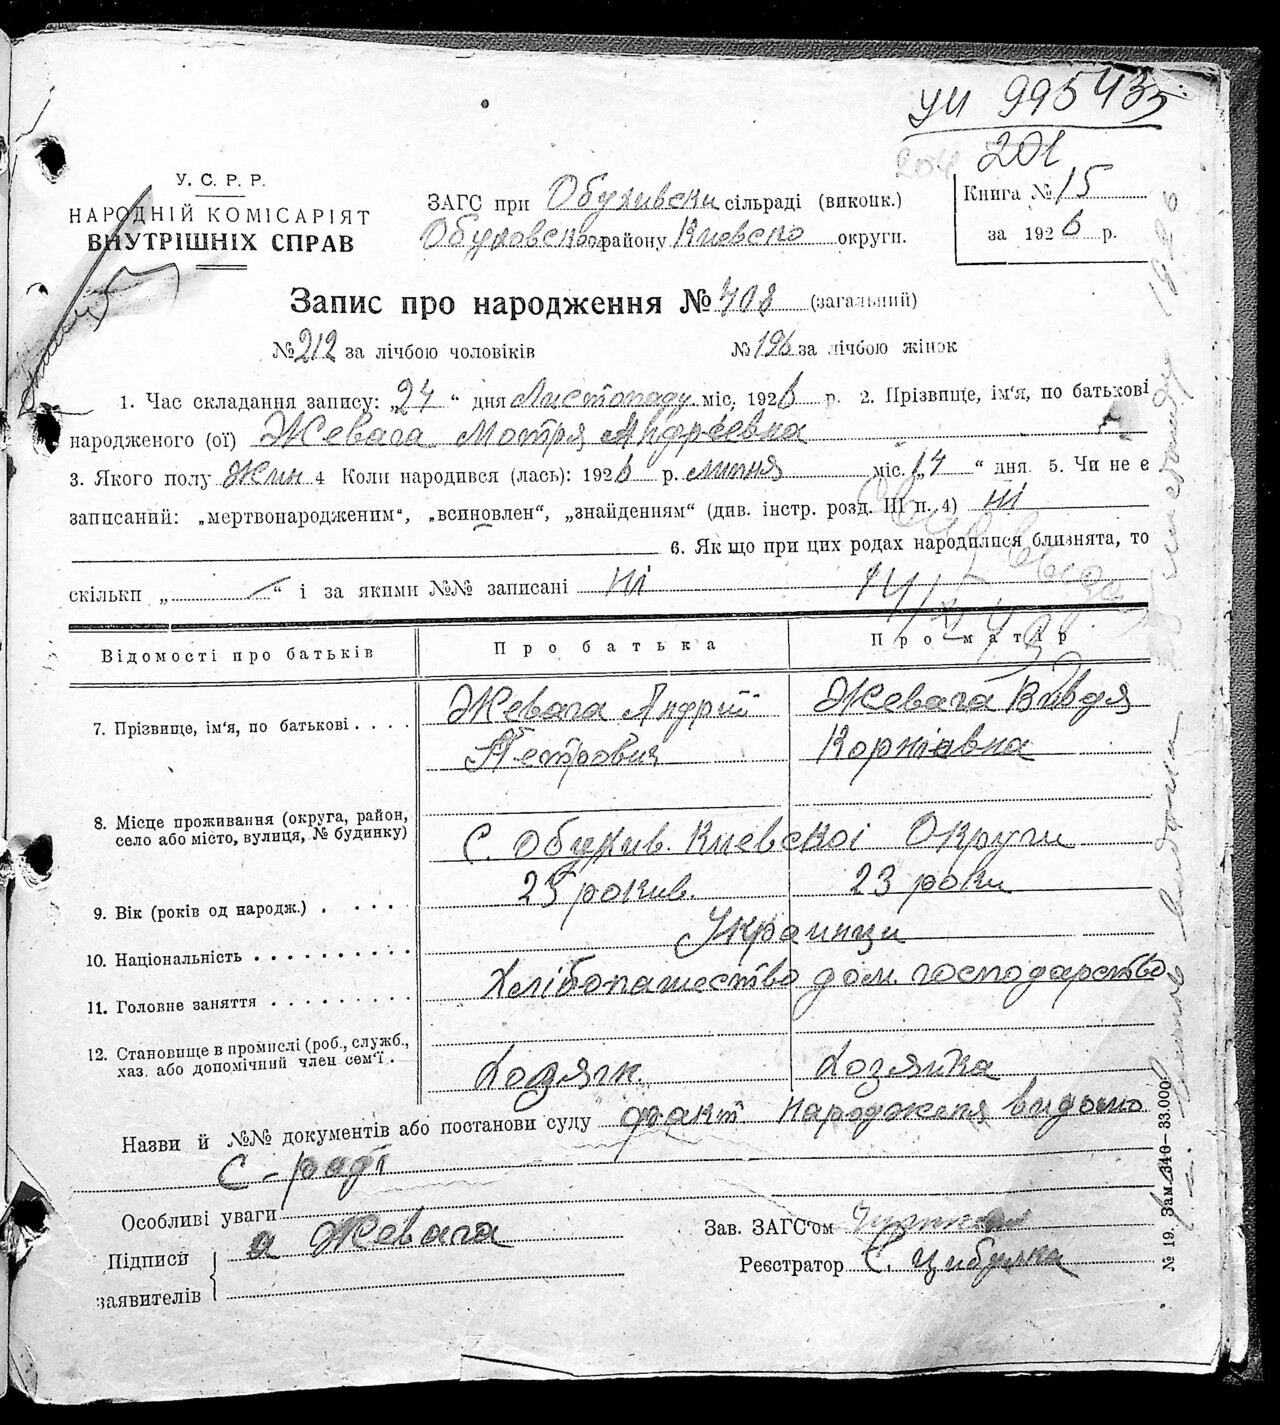 УИ 995435
204 201
У. С. Р. Р.
НАРОДНІЙ КОМІСАРІЯТ
ВНУТРІШНІХ СПРАВ
ЗАГС при Обухивски сільраді (виконк.)
Обуховського району Киевско округи.
Книга № 15
за 1926 р.
Запис про народження № 408 (загальний)
№ 212 за лічбою чоловіків № 196 за лічбою жінок
1. Час складання запису: „24“ дня Листопаду міс. 1926 р. 2. Прізвище, ім'я, по батькові
народженого (ої) Жевага Мотря Андреевна
3. Якого полу Жин 4 Коли народився (лась): 1926 р. липня міс. 14 “ дня. 5. Чи не є
записаний: „мертвонародженим“, „всиновлен“, „знайденням“ (див. інстр. розд. III п. 4) ні
6. Якщо при цих родах народилися близнята, то
скільки „ — “ і за якими №№ записані ні
Відомості про батьків Про батька Про матір
7. Прізвище, ім'я, по батькові . . . . Жевага Андрій Жевага Вивдя
Петрович Корніивна
8. Місце проживання (округа, район,
село або місто, вулиця, № будинку) С. Обухив. Киевскоі Округи
9. Вік (років од народж.) . . . . . 25 рокив. 23 роки
10. Національність . . . . . . . . . . Украинци
11. Головне заняття . . . . . . . . . Хлібопашество дом. господарство
12. Становище в промислі (роб., служб.,
хаз. або допомічний член сем'ї . . Хозяин. Хозяйка
Назви й №№ документів або постанови суду факт. народженя видомо
С-раді
Особливі уваги
Підписи а Жевага
Зав. ЗАГС'ом
заявителів
Реєстратор С. Цибулка
№ 19. Зам. 340—33.000